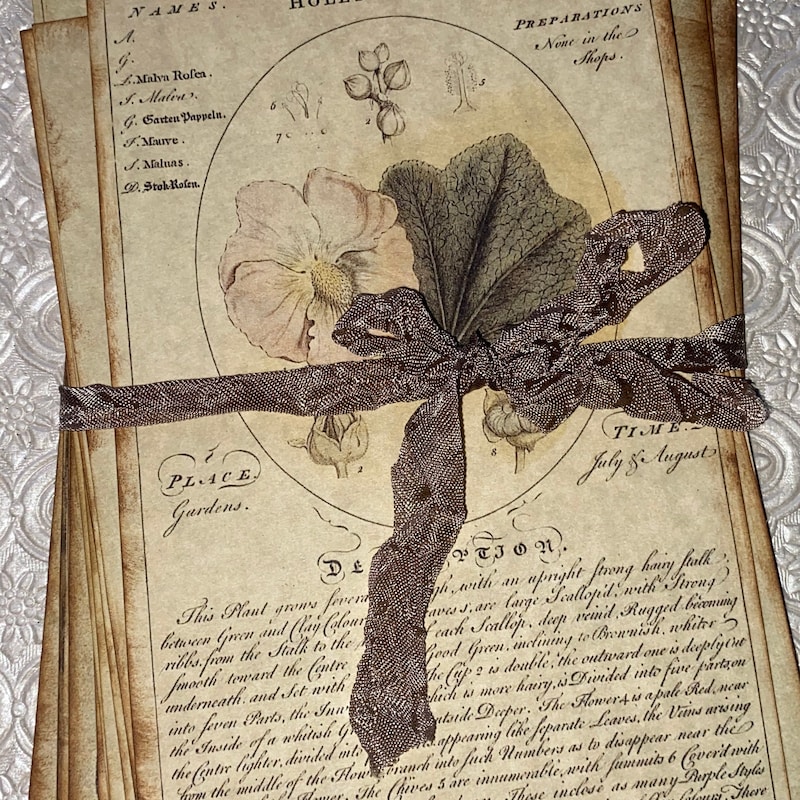 NAMES.
HOLL
A.
G.
L. Malva Rosea.
I. Malva.
G. Garten Pappeln.
F. Mauve.
S. Maluas.
D. Stok-Rosen.
PREPARATIONS
None in the
Shops.
6
7
2
5
1
8
PLACE.
Gardens.
TIME.
July & August
DE PTION.
This Plant grows severa gh, with an upright strong hairy stalk
between Green and Clay Colour aves 3, are large Scallop'd, with Strong
ribbs, from the Stalk to the each Scallop, deep vein'd, Rugged becoming
smooth toward the Centre Good Green, inclining to Brownish, whiter
underneath, and Set with he Cup 2 is double, the outward one is deeply Cut
into seven Parts, the Inw hich is more hairy, is Divided into five parts, on
the Inside of a whitish G utside Deeper. The Flower 4 is a pale Red, near
the Centre lighter, divided int appearing like separate Leaves, the Veins arising
from the middle of the Flow branch into such Numbers as to disappear near the
Flower. The Chives 5 are innumerable, with summits 6 Cover'd with
These inclose as many Purple Styles
Colour. There